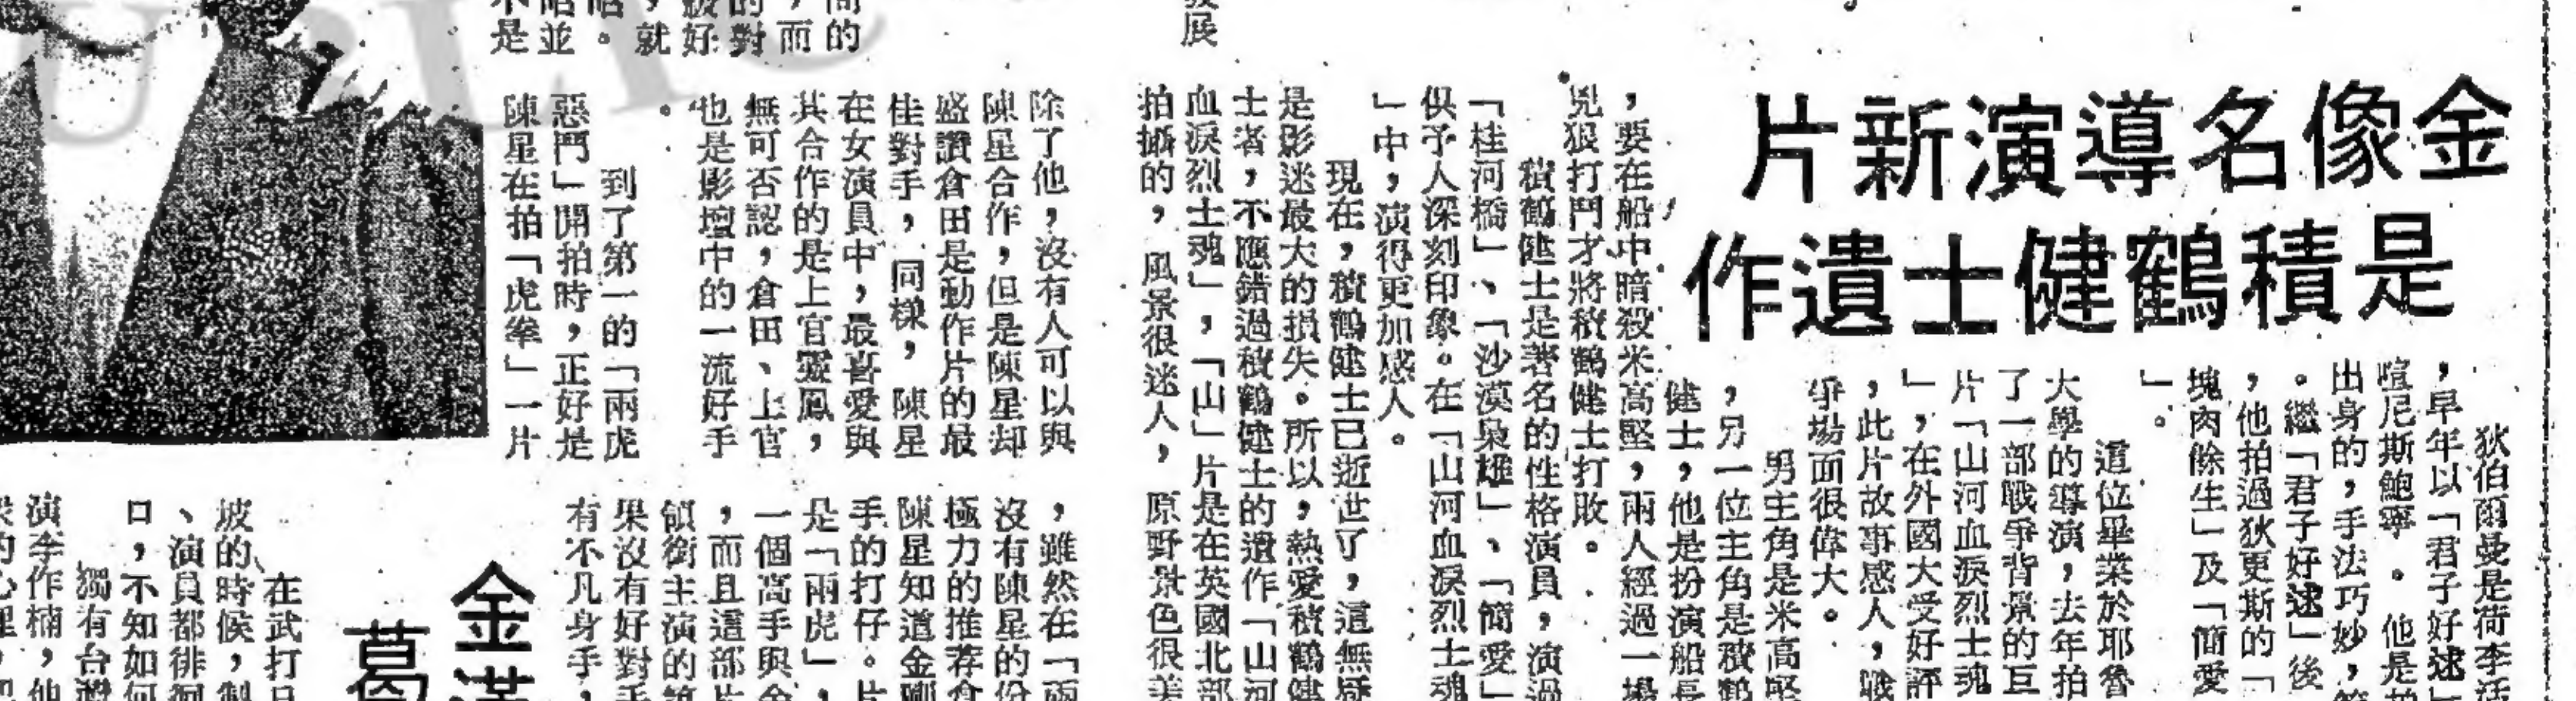 金像名導演新片
是積鶴健士遺作
狄伯爾曼是荷李活
，早年以「君子好逑」
喧尼斯鮑寧。他是拍
出身的，手法巧妙，
。繼「君子好逑」後
，他拍過狄更斯的「
塊肉餘生」及「簡愛
」。
這位畢業於耶魯
大學的導演，去年拍
了一部戰爭背景的巨
片「山河血淚烈士魂
」，在外國大受好評
，此片故事感人，戰
爭場面很偉大。
男主角是米高堅
，另一位主角是積鶴
健士，他是扮演船長
，要在船中暗殺米高堅，兩人經過一場
兇狠打鬥才將積鶴健士打敗。
積鶴健士是著名的性格演員，演過
「桂河橋」、「沙漠梟雄」、「簡愛」
俱予人深刻印象。在「山河血淚烈士魂
」中，演得更加感人。
現在，積鶴健士已逝世了，這無疑
是影迷最大的損失。所以，熱愛積鶴健
士者，不應錯過積鶴健士的遺作「山河
血淚烈士魂」，「山」片是在英國北部
拍攝的，風景很迷人，原野景色很美
展
簡的
，而
的對
級好
，就
。
並
不是
除了他，沒有人可以與
陳星合作，但是陳星却
盛讚倉田是動作片的最
佳對手，同樣，陳星
在女演員中，最喜愛與
其合作的是上官靈鳳，
無可否認，倉田、上官
也是影壇中的一流好手
。
到了第一的「兩虎
惡鬥」開拍時，正好是
陳星在拍「虎拳」一片
，雖然在「兩
沒有陳星的份
極力的推荐倉
陳星知道金剛
手的打仔。片
是「兩虎」，
一個高手與金
，而且這部片
領銜主演的
果沒有好對手
有不凡身手，
金漢
葛
在武打片
坡的時候，製
、演員都徘徊
口，不知如何
獨有台灣
演李作楠，他
的心理，